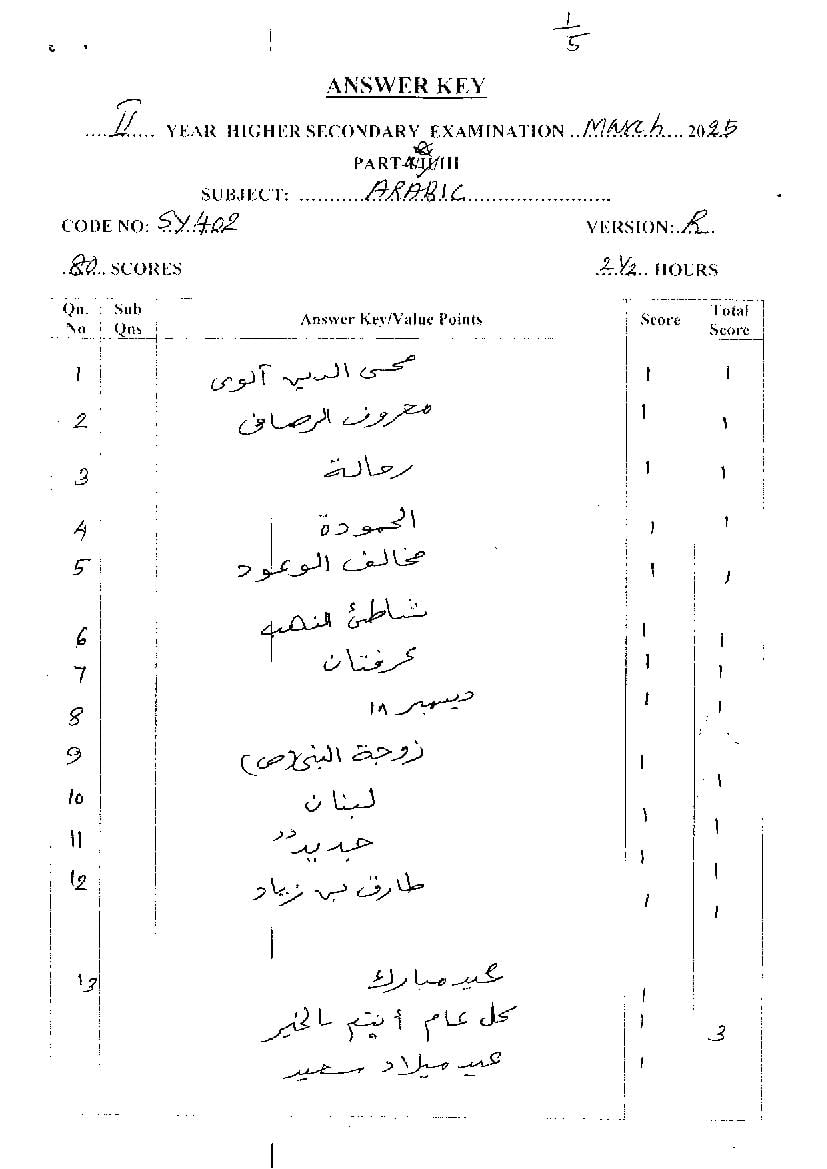 1/5
ANSWER KEY
....II.... YEAR HIGHER SECONDARY EXAMINATION ..March.... 2025
PART I/II/III
SUBJECT: ...........ARABIC.......................
CODE NO: SY402 VERSION: R
80 SCORES 2 1/2 HOURS
Qn. No Sub Qns Answer Key/Value Points Score Total Score
1 محي الدين آلوى 1 1
2 معروف الرصافي 1 1
3 رحالة 1 1
4 الحمودة 1 1
5 مخالف الوعود 1 1
6 شاطئ 1 1
7 عرفتان 1 1
8 ديسمبر ١٨ 1 1
9 زوجة النبي (ص) 1 1
10 لبنان 1 1
11 جديد 1 1
12 طارق بن زياد 1 1
13 عيد مبارك 1
كل عام أنتم بالخير 1 3
عيد ميلاد سعيد 1